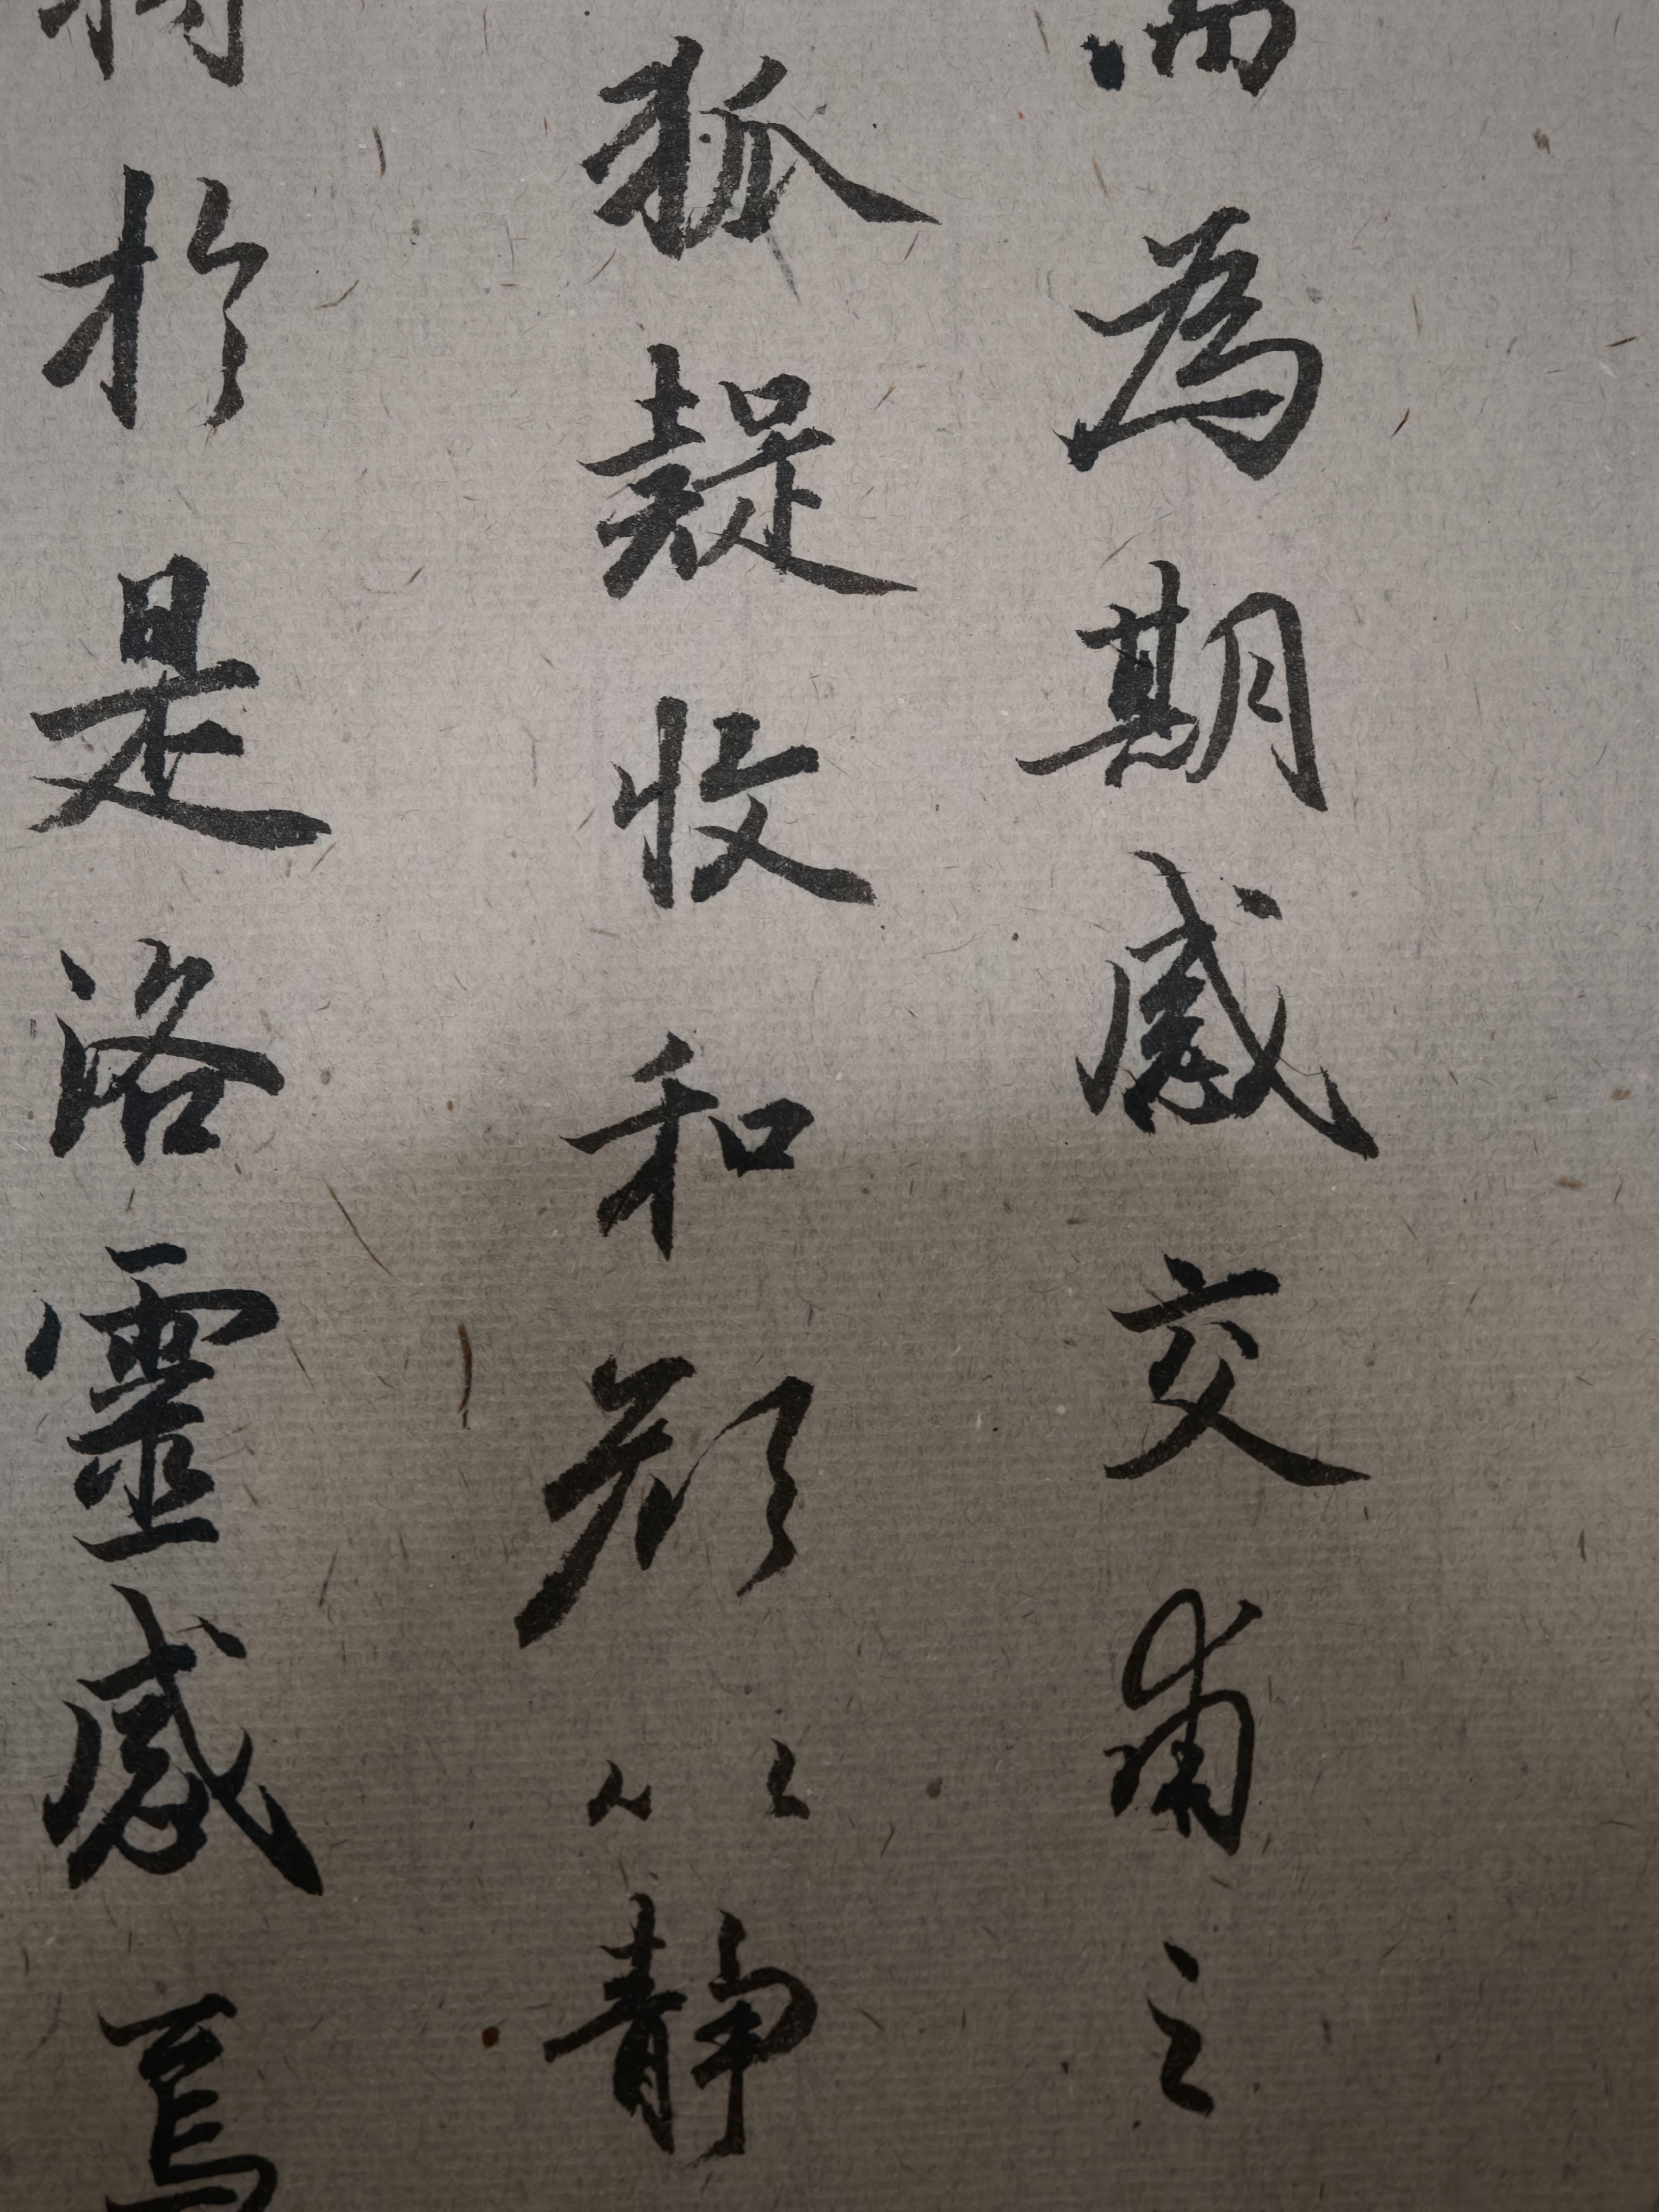 為期感交甫之
狐疑收和顔以静
於是洛靈感焉